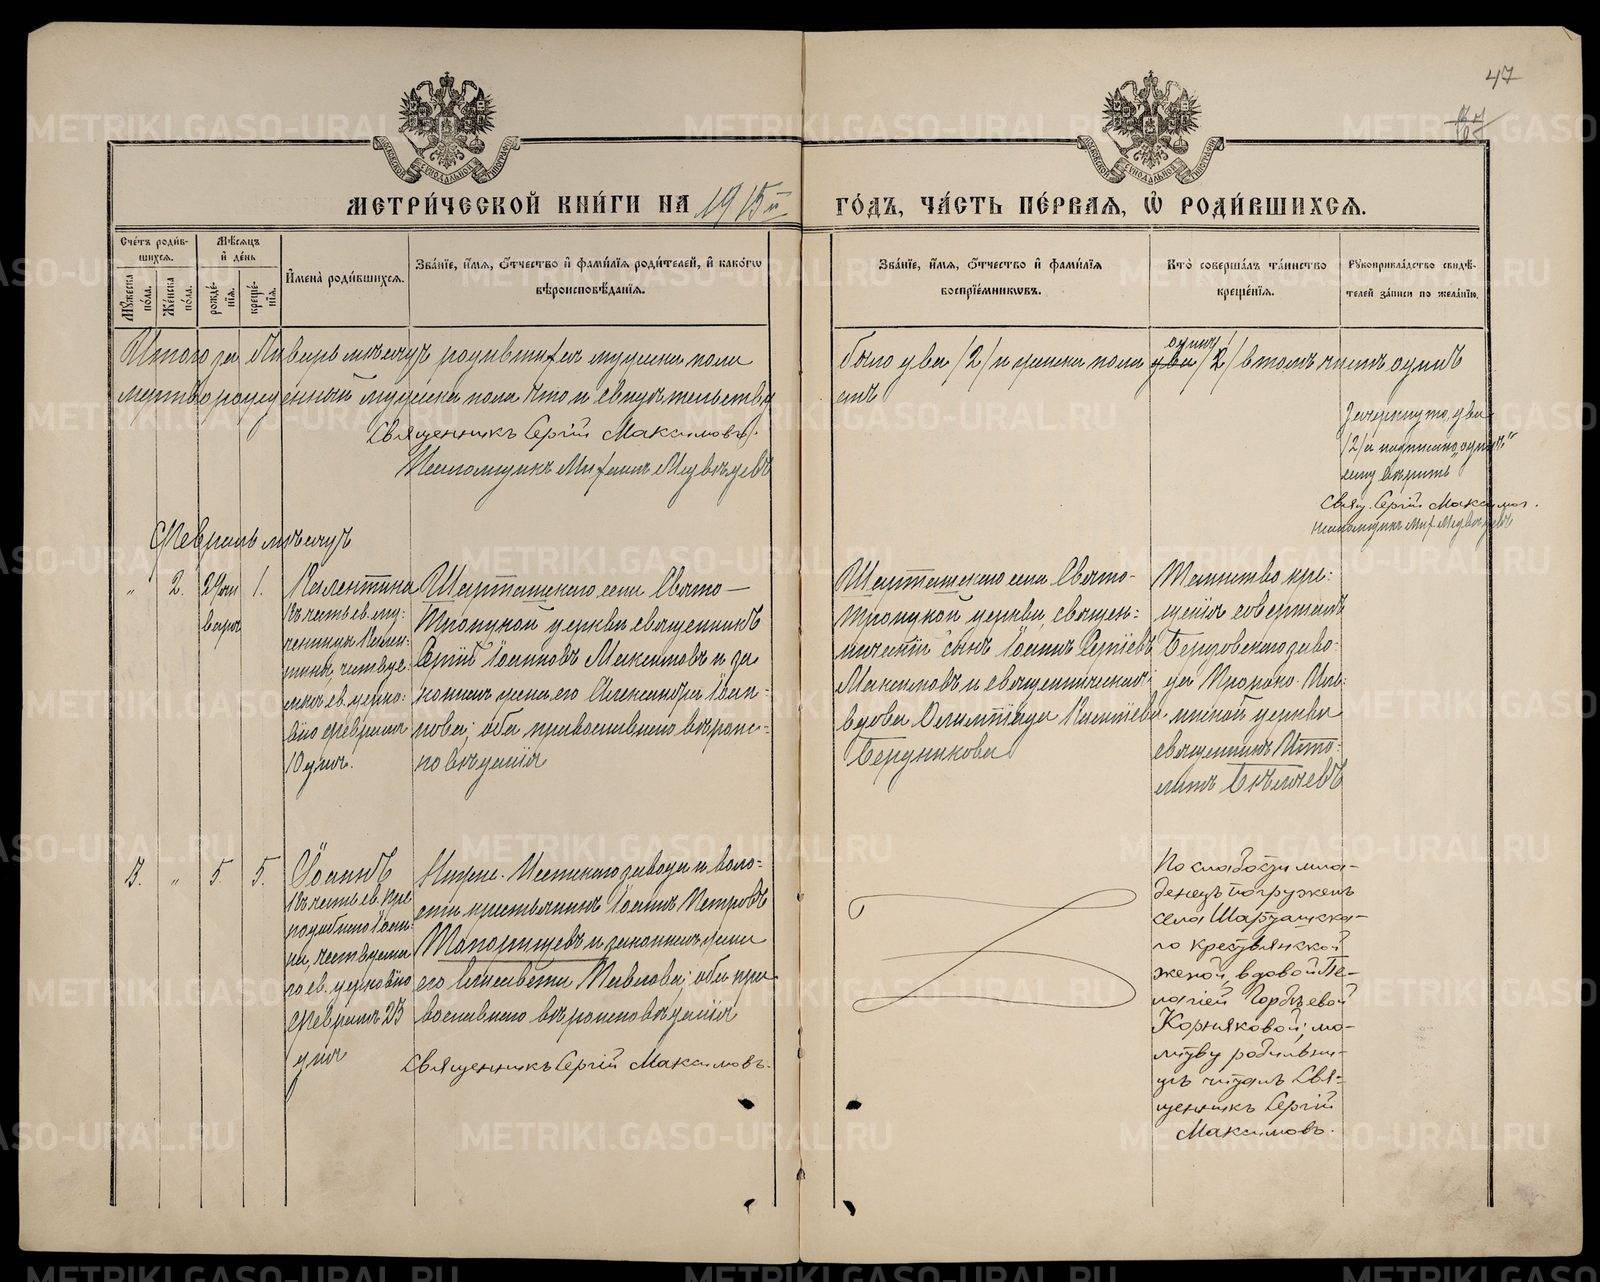 47
МЕТРИ́ЧЕСКОЙ КНИ́ГИ НА 1915й ГО́ДЪ, ЧА́СТЬ ПЕ́РВАЯ, Ѡ҆ РОДИ́ВШИХСЯ.
Сче́тъ роди́в-
шихся.
Мꙋжеска по́ла.
Же́нска по́ла.
Мѣ́сяцъ
и҆ де́нь
рожде́-
нїя.
креще́-
нїя.
И҆мена̀ роди́вшихся.
Зва́нїе, и҆́мя, ѻ҆́тчество и҆ фами́лїя роди́телей, и҆ како́гѡ
вѣроисповѣ́данїя.
Зва́нїе, и҆́мя, ѻ҆́тчество и҆ фами́лїя
воспрїе́мникѡвъ.
Кто̀ соверша́лъ та́инство
креще́нїя.
Рꙋкоприкла́дство свидѣ́-
телей за́писи по жела́нїю.
Итого за Январь мѣсяцъ родившихся мужска пола было два /2/ и женска пола два /2/ въ томъ числѣ одинъ
одинъ
мертворожденный мужска пола что и свидѣтельствуемъ
Священникъ Сергій Максимовъ.
Псаломщикъ Михаилъ Медвѣдевъ
Зачеркнуто „два
/2/ и надписано „одинъ“
сему вѣрить
Свящ. Сергій Максимов.
псаломщикъ Мих Медвѣдевъ
Февраль мѣсяцъ
„ 2. 29 ян
варя
1.
Валентина
Въ честь св. му-
ченицы Вален-
тины, чтимой
Февраля
10 дня.
Шарташскаго села Свято-
Троицкой церкви священникъ
Сергій Іоанновъ Максимовъ и за
конная жена его Александра Іоан-
нова; оба православнаго вѣроис-
повѣданія
Шарташскаго села Свято-
Троицкой церкви, священ-
ническій сынъ Іоаннъ Сергіевъ
Максимовъ и священническая
вдова Олимпіада Васильева
Бердникова
Таинство кре-
щенія совершалъ
Березовскаго заво-
да Пророко-Иль-
инской церкви
священникъ Иппо-
литъ Бѣляевъ
3. „ 5 5.
Іоаннъ
Въ честь св. пре
подобнаго Іоан-
на, чествуема
го св. церковію
Февраля 23
дня
Нижне-Исетскаго завода и воло-
сти крестьянинъ Іоаннъ Петровъ
Топорищевъ и законная жена
его Елисавета Павлова; оба пра
вославнаго вѣроисповѣданія
Священникъ Сергій Максимовъ.
По слабости мла-
денецъ погруженъ
села Шарташска-
го крестьянской
женой, вдовой Пе-
лагіей Гордѣевой
Корняковой; мо-
литву родильни-
цѣ читалъ Свя-
щенникъ Сергій
Максимовъ.
METRIKI.GASO-URAL.RU